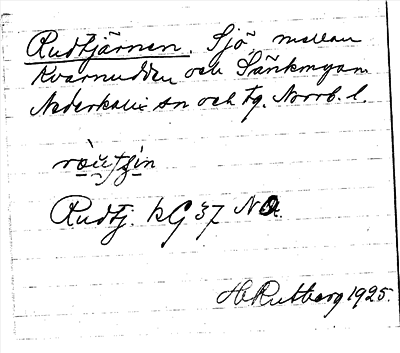 Rudtjärnen. Sjö mellan
Kvarnudden och Sänkmyran
Nederkalix sn och tg. Norrb. l.
Rudtj. kG 37 NO.
H. Rutberg 1925.